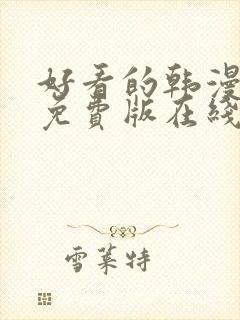 好看的韩漫
免費版在綫
雪莱特